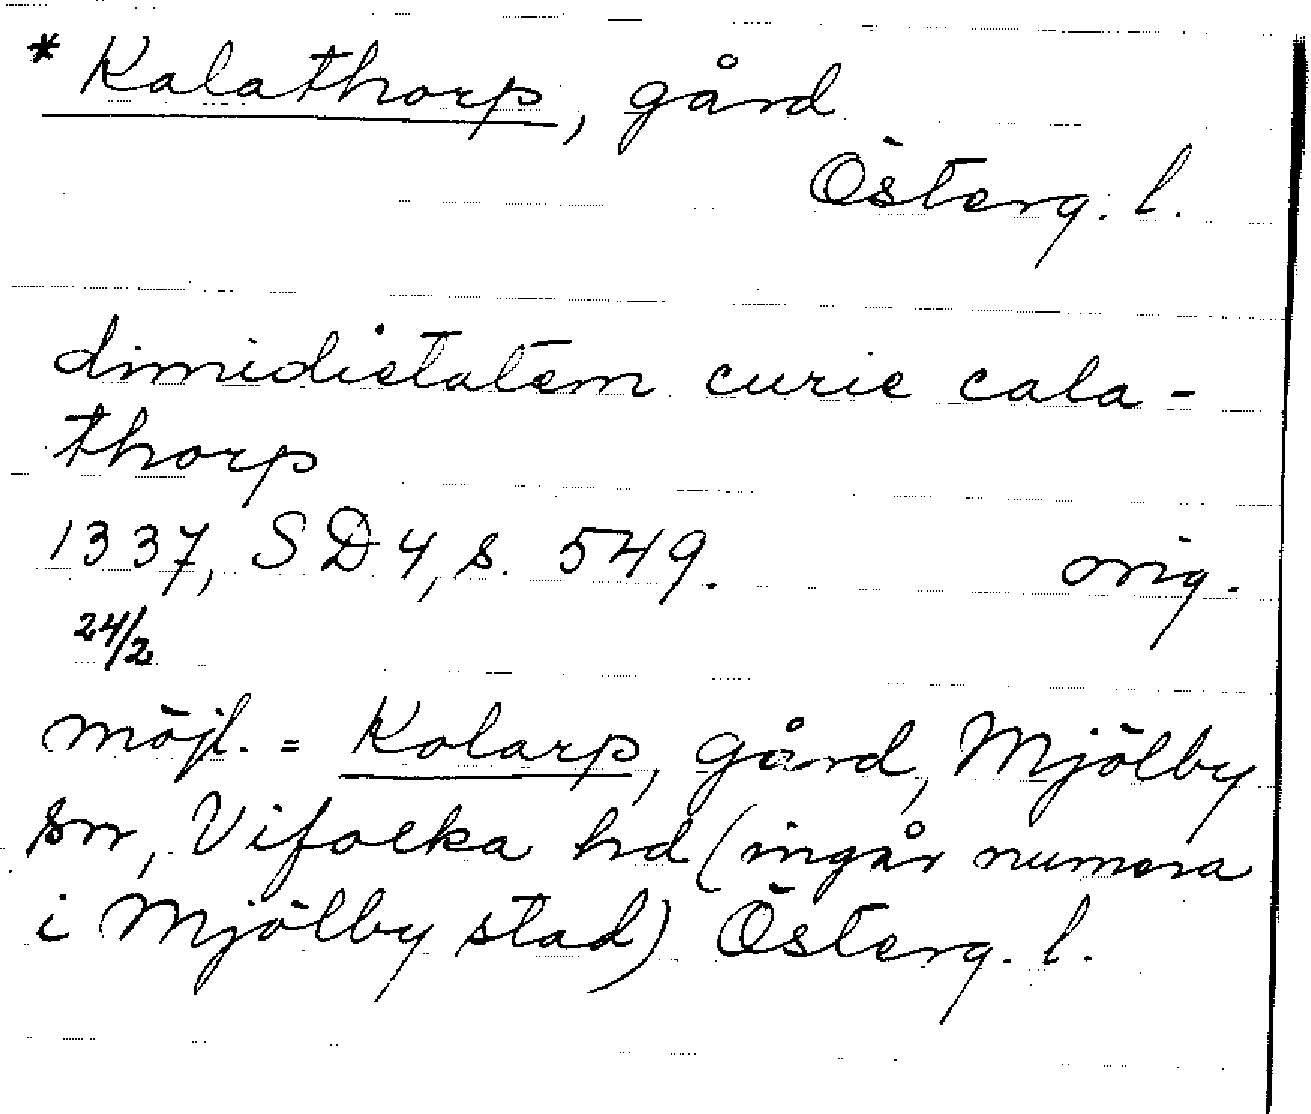 * Kalathorp, gård
Österg. l.
dimidietatem curie cala-
thorp
1337, SD 4, s. 549. orig.
24/2
möjl. = Kolarp, gård, Mjölby
sn, Vifolka hd (ingår numera
i Mjölby stad) Österg. l.